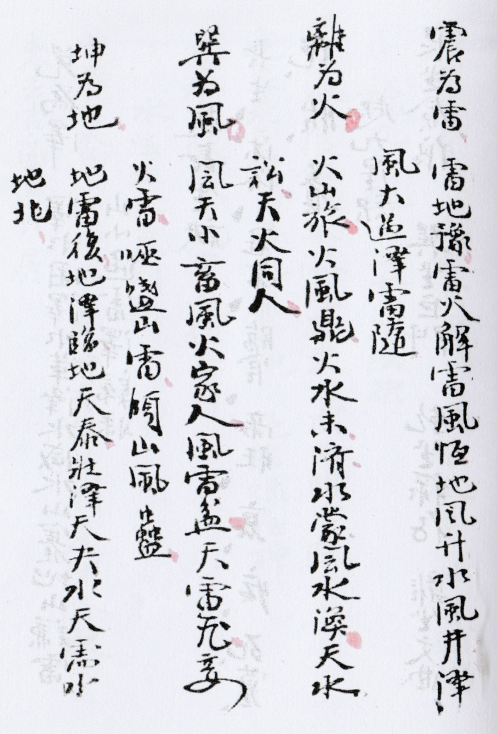 震為雷 雷地豫雷火解雷風恆地風升水風井澤
風大過澤雷隨
離為火 火山旅火風鼎火水未濟水蒙風水渙天水
訟天火同人
巽為風 風天小畜風火家人風雷益天雷无妄
火雷噬嗑山雷頤山風蠱
坤為地 地雷復地澤臨地天泰壯澤天夬水天需水
地比